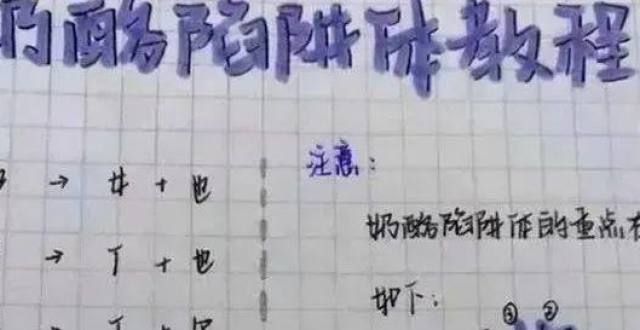 奶酪陷阱体教程
注意:
→ 女 + 也
奶酪陷阱体的重点
→ 亻 + 也
如下:
① ②